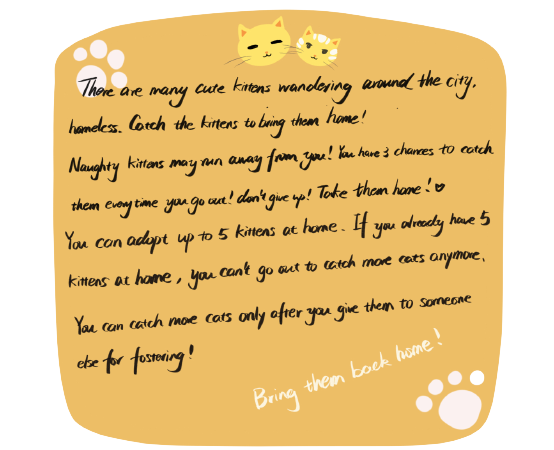 There are many cute kittens wandering around the city,
homeless. Catch the kittens to bring them home!
Naughty kittens may run away from you! You have 3 chances to catch
them every time you go out! don't give up! Take them home!
You can adopt up to 5 kittens at home. If you already have 5
kittens at home, you can't go out to catch more cats anymore.
You can catch more cats only after you give them to someone
else for fostering!
Bring them back home!